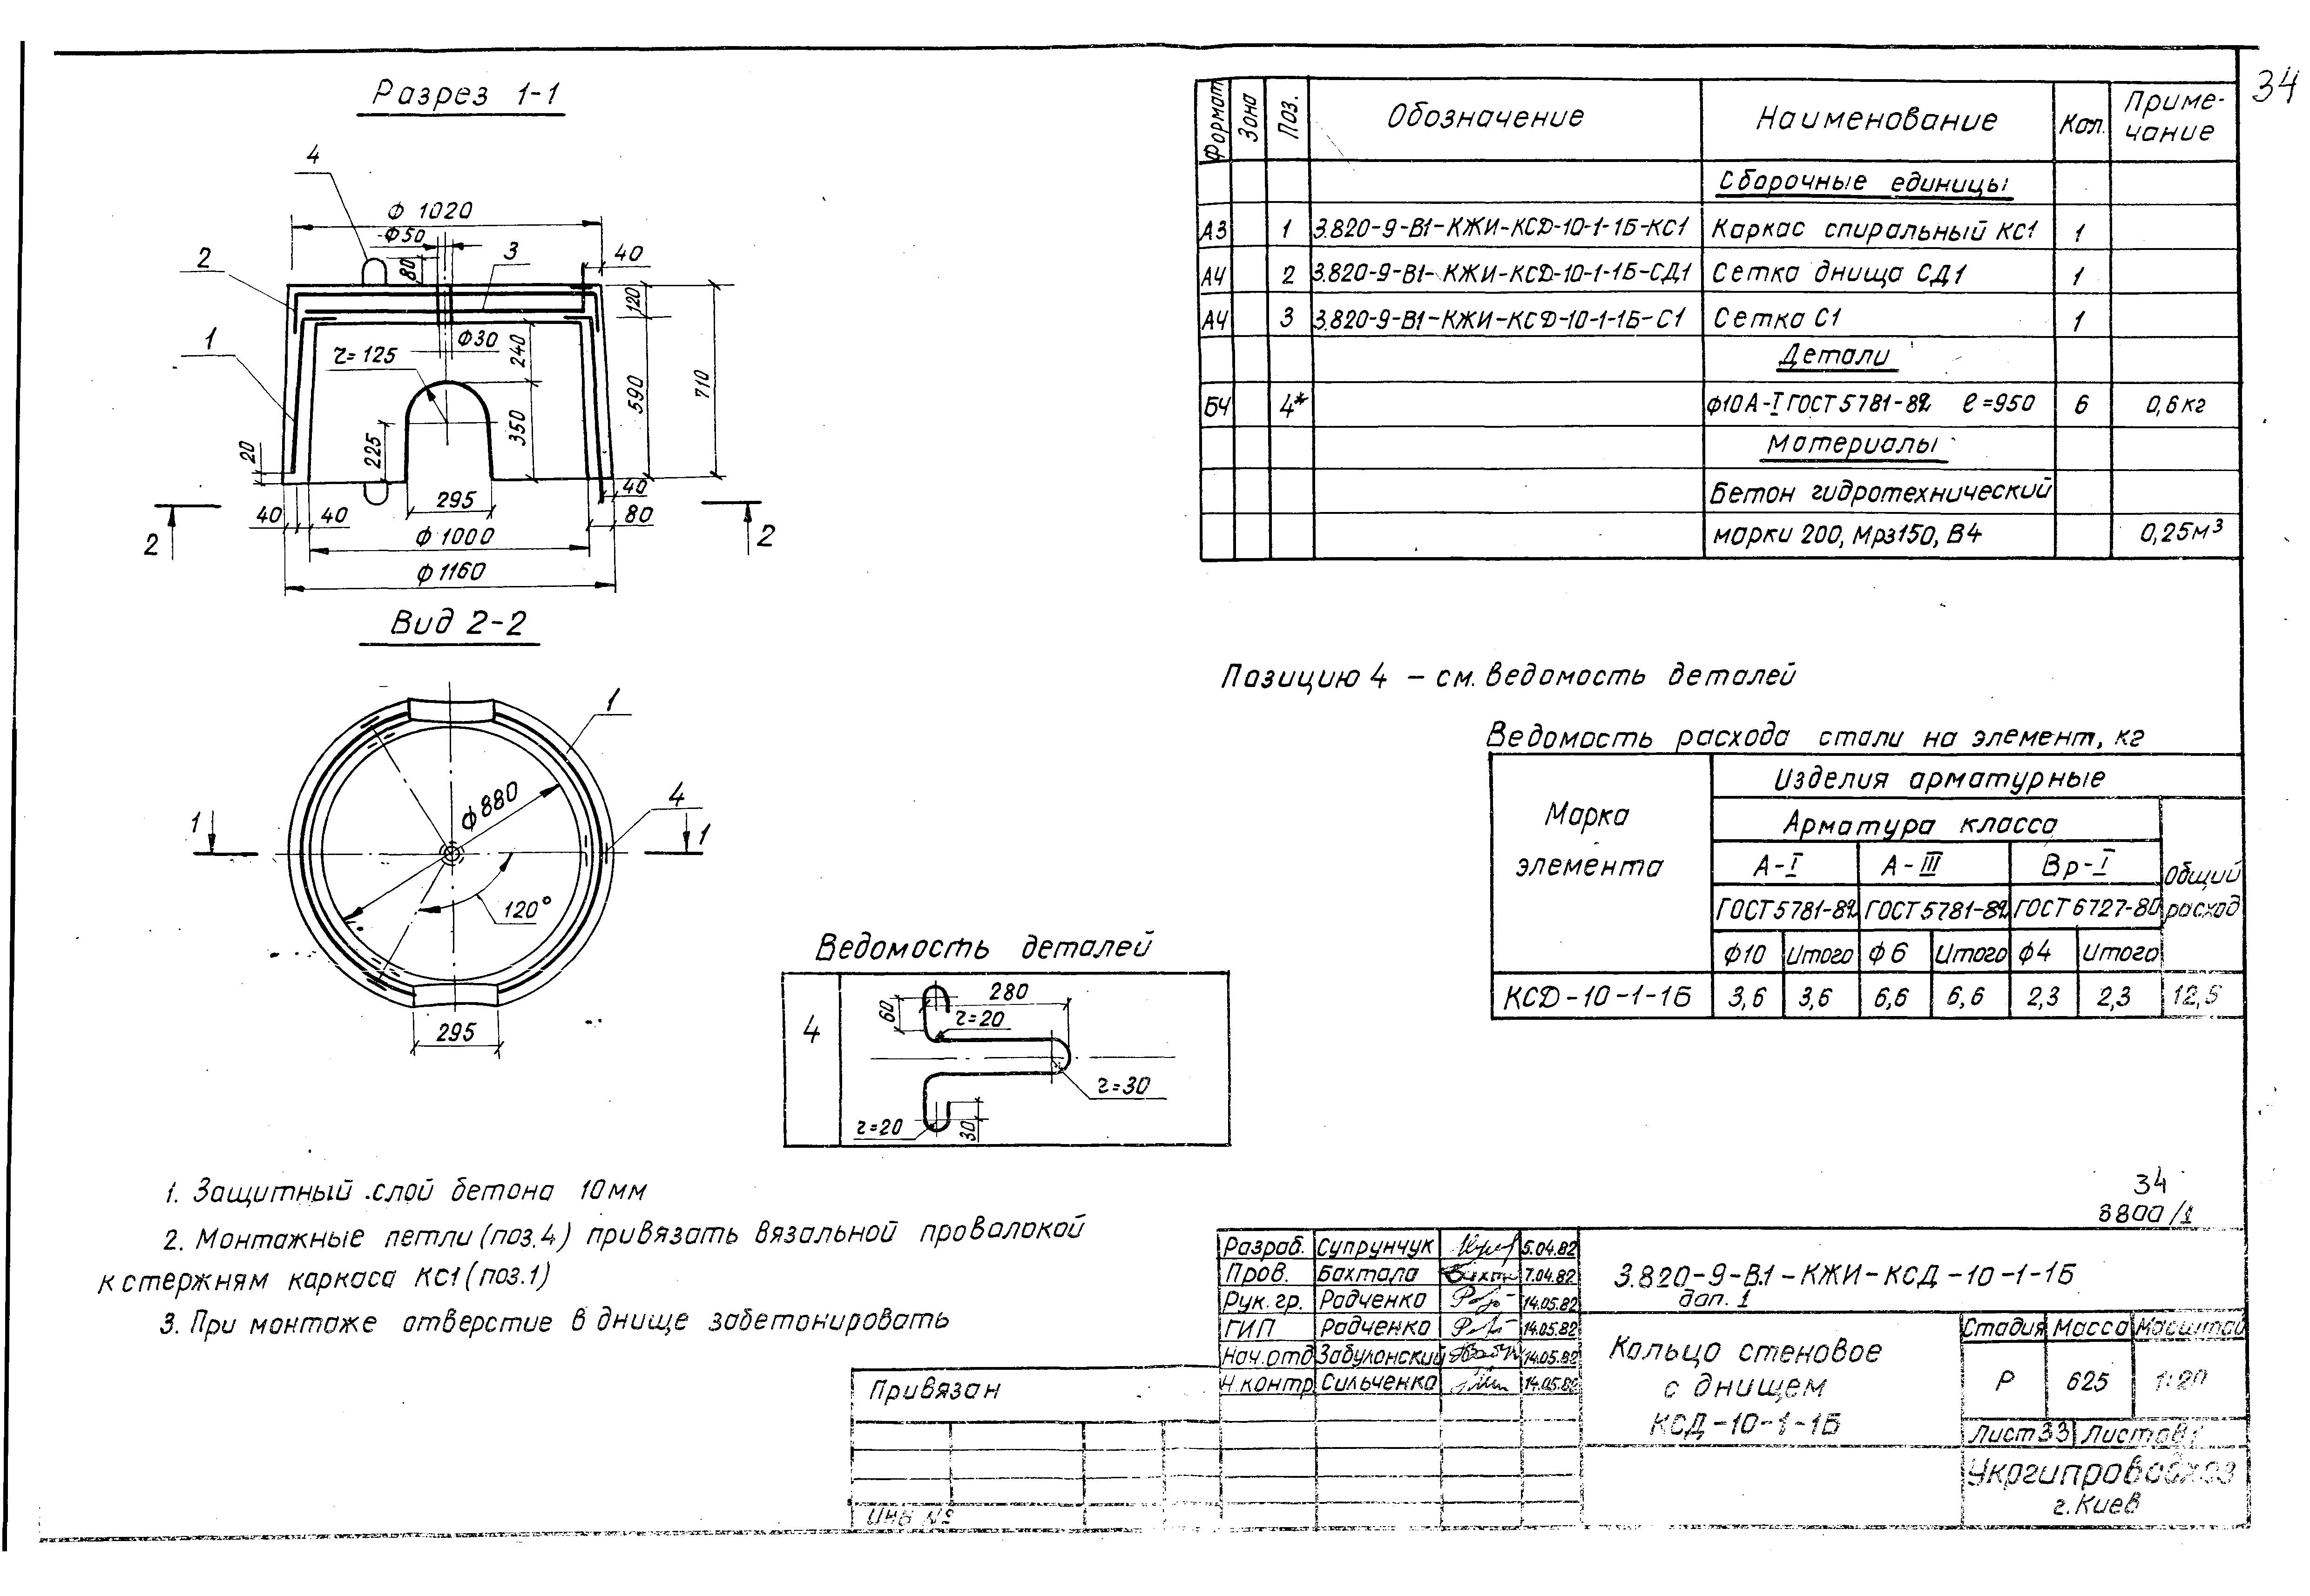 34
Разрез 1-1
4
ф 1020
ф50
80
3
40
2
120
1
ф30
r=125
240
590
710
350
225
20
295
40
80
40
40
ф1000
ф1160
2
2
Вид 2-2
1
ф880
4
1
1
120°
295
Формат Зона Поз. Обозначение Наименование Кол. Приме-
чание
Сборочные единицы
А3 1 3.820-9-В1-КЖИ-КСД-10-1-1Б-КС1 Каркас спиральный КС1 1
А4 2 3.820-9-В1-КЖИ-КСД-10-1-1Б-СД1 Сетка днища СД1 1
А4 3 3.820-9-В1-КЖИ-КСД-10-1-1Б-С1 Сетка С1 1
Детали
БЧ 4* ф10А-I ГОСТ 5781-82 ℓ=950 6 0,6кг
Материалы
Бетон гидротехнический
марки 200, Мрз150, В4 0,25м³
Позицию 4 - см. ведомость деталей
Ведомость расхода стали на элемент, кг
Марка
элемента
Изделия арматурные
Арматура класса
Общий
расход
А-I А-III Вр-I
ГОСТ 5781-82 ГОСТ 5781-82 ГОСТ 6727-80
ф10 Итого ф6 Итого ф4 Итого
КСД-10-1-1Б 3,6 3,6 6,6 6,6 2,3 2,3 12,5
Ведомость деталей
4
60
280
r=20
r=30
r=20
30
1. Защитный слой бетона 10мм
2. Монтажные петли (поз.4) привязать вязальной проволокой
к стержням каркаса КС1 (поз.1)
3. При монтаже отверстие в днище забетонировать
34
8800/1
Разраб. Супрунчук 5.04.82
Пров. Бахтала 7.04.82
Рук. гр. Радченко 14.05.82
ГИП Радченко 14.05.82
Нач.отд Забулонский 14.05.82
Н.контр Сильченко 14.05.82
3.820-9-В.1-КЖИ-КСД-10-1-1Б
доп. 1
Кольцо стеновое
с днищем
КСД-10-1-1Б
Стадия Масса Масштаб
Р 625 1:20
Лист 33 Листов 1
Укргипроводхоз
г. Киев
Привязан
Инв №